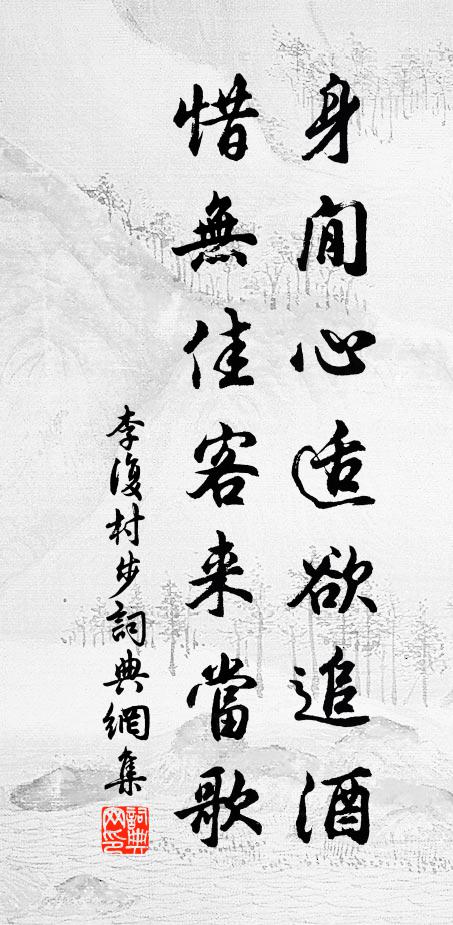 身閒心适欲追酒
惜無佳客来當歌
李復村步詞典網集
詞典网印